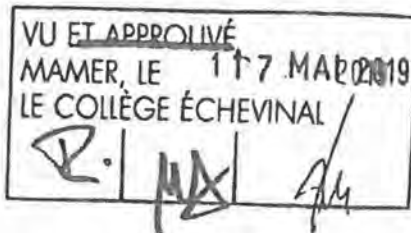 VU ET APPROUVÉ
MAMER, LE 17 MAI 2019
LE COLLÈGE ÉCHEVINAL
R.